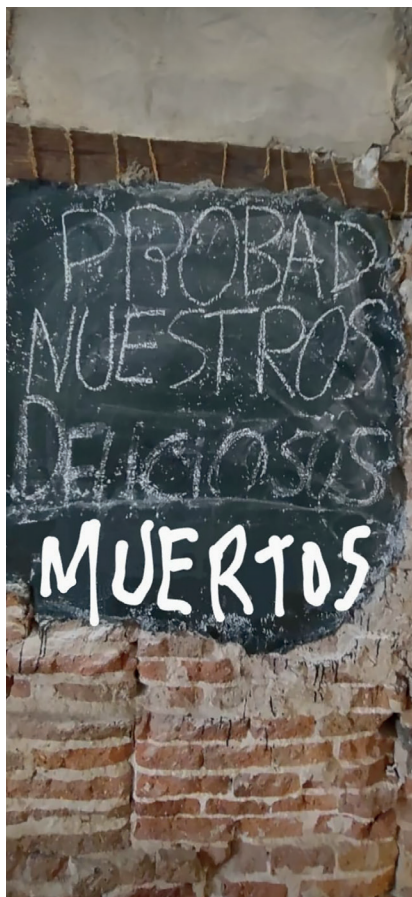 PROBAD
NUESTROS
DELICIOSOS
MUERTOS